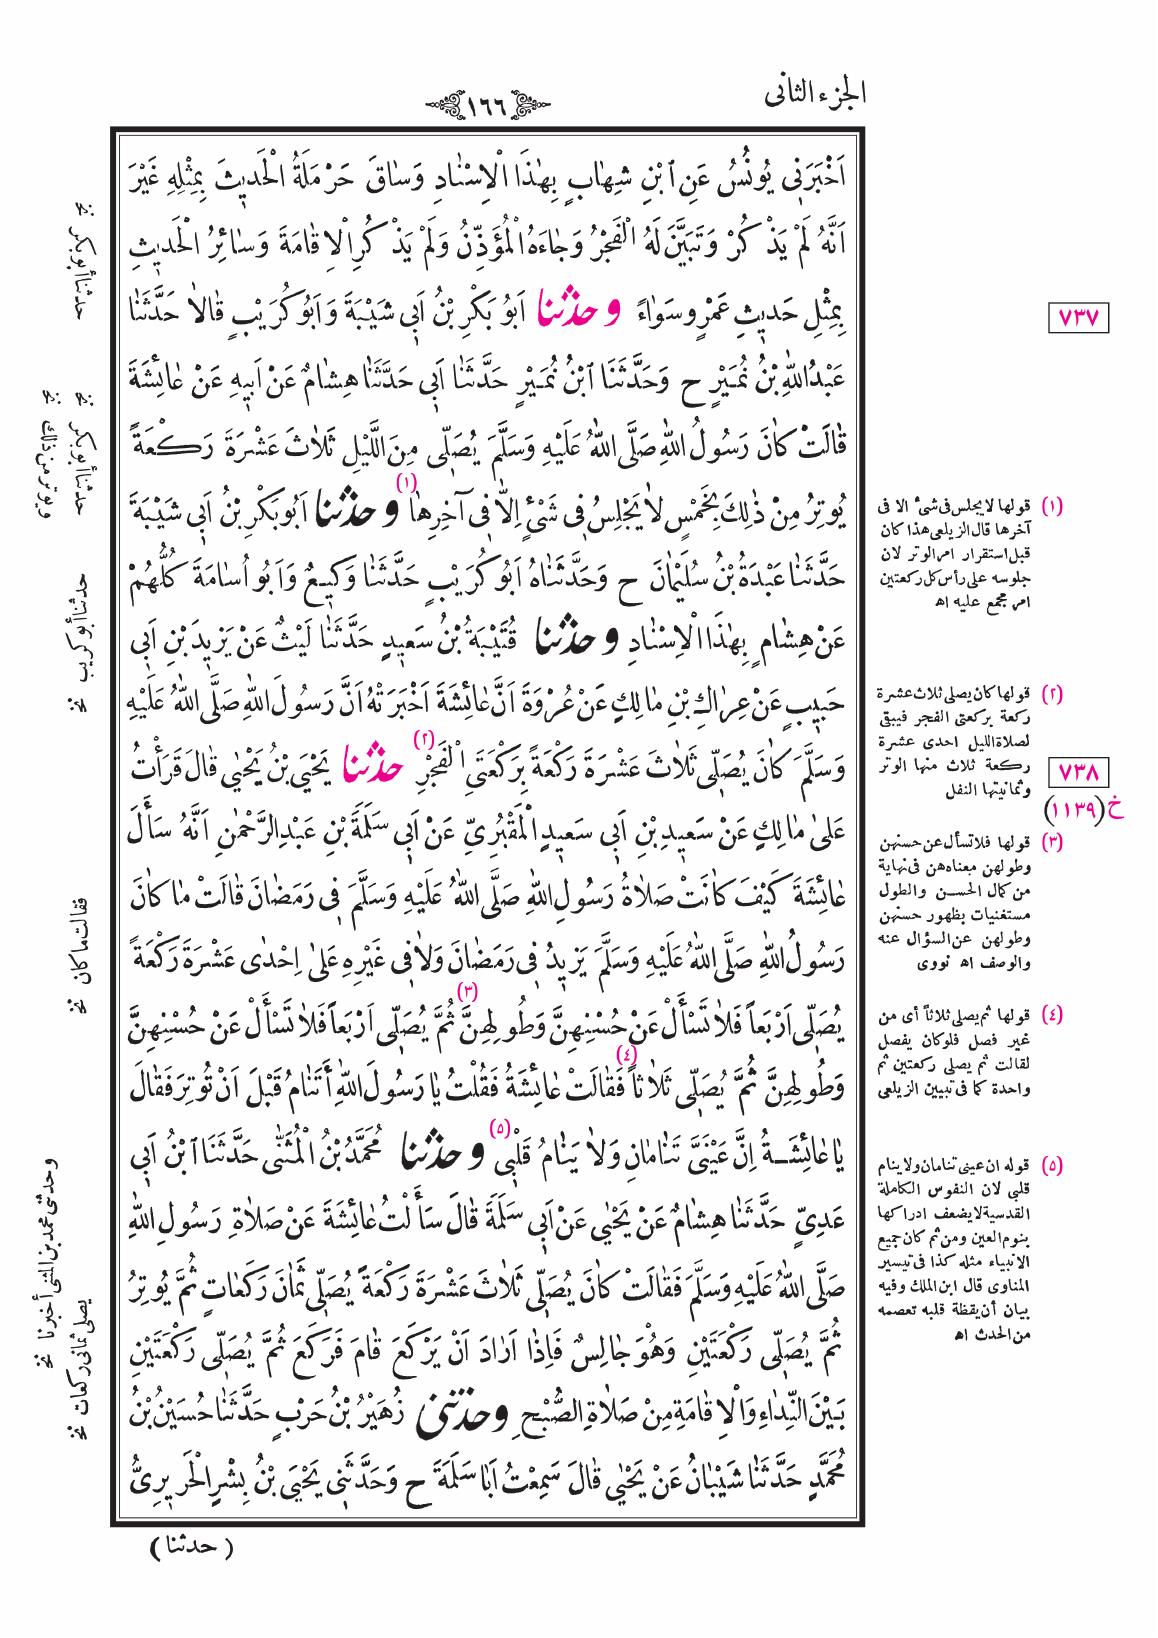 الجزء الثانى
١٦٦
اَخْبَرَنِى يُونُسُ عَنِ ٱبْنِ شِهَابٍ بِهٰذَا الْاِسْنَادِ وَسَاقَ حَرْمَلَةُ الْحَدِيثَ بِمِثْلِهِ غَيْرَ
اَنَّهُ لَمْ يَذْكُرْ وَتَبَيَّنَ لَهُ الْفَجْرُ وَجَاءَهُ الْمُؤَذِّنُ وَلَمْ يَذْكُرِ الْاِقَامَةَ وَسَائِرُ الْحَدِيثِ
بِمِثْلِ حَدِيثِ عَمْرٍو سَوَاءً و حدثنا اَبُو بَكْرِ بْنُ اَبِى شَيْبَةَ وَاَبُو كُرَيْبٍ قَالَا حَدَّثَنَا
عَبْدُاللّٰهِ بْنُ نُمَيْرٍ ح وَحَدَّثَنَا ٱبْنُ نُمَيْرٍ حَدَّثَنَا اَبِى حَدَّثَنَا هِشَامٌ عَنْ اَبِيهِ عَنْ عَائِشَةَ
قَالَتْ كَانَ رَسُولُ اللّٰهِ صَلَّى اللّٰهُ عَلَيْهِ وَسَلَّمَ يُصَلِّى مِنَ اللَّيْلِ ثَلَاثَ عَشْرَةَ رَكْعَةً
يُوتِرُ مِنْ ذٰلِكَ بِخَمْسٍ لَا يَجْلِسُ فِى شَىْءٍ اِلَّا فِى آخِرِهَا (١) و حدثنا اَبُو بَكْرِ بْنُ اَبِى شَيْبَةَ
حَدَّثَنَا عَبْدَةُ بْنُ سُلَيْمَانَ ح وَحَدَّثَنَاهُ اَبُو كُرَيْبٍ حَدَّثَنَا وَكِيعٌ وَاَبُو اُسَامَةَ كُلُّهُمْ
عَنْ هِشَامٍ بِهٰذَا الْاِسْنَادِ و حدثنا قُتَيْبَةُ بْنُ سَعِيدٍ حَدَّثَنَا لَيْثٌ عَنْ يَزِيدَ بْنِ اَبِى
حَبِيبٍ عَنْ عِرَاكِ بْنِ مَالِكٍ عَنْ عُرْوَةَ اَنَّ عَائِشَةَ اَخْبَرَتْهُ اَنَّ رَسُولَ اللّٰهِ صَلَّى اللّٰهُ عَلَيْهِ
وَسَلَّمَ كَانَ يُصَلِّى ثَلَاثَ عَشْرَةَ رَكْعَةً بِرَكْعَتَىِ الْفَجْرِ (٢) حدثنا يَحْيَى بْنُ يَحْيٰى قَالَ قَرَأْتُ
عَلىٰ مَالِكٍ عَنْ سَعِيدِ بْنِ اَبِى سَعِيدٍ الْمَقْبُرِىِّ عَنْ اَبِى سَلَمَةَ بْنِ عَبْدِ الرَّحْمٰنِ اَنَّهُ سَأَلَ
عَائِشَةَ كَيْفَ كَانَتْ صَلَاةُ رَسُولِ اللّٰهِ صَلَّى اللّٰهُ عَلَيْهِ وَسَلَّمَ فِى رَمَضَانَ قَالَتْ مَا كَانَ
رَسُولُ اللّٰهِ صَلَّى اللّٰهُ عَلَيْهِ وَسَلَّمَ يَزِيدُ فِى رَمَضَانَ وَلَا فِى غَيْرِهِ عَلىٰ اِحْدٰى عَشْرَةَ رَكْعَةً
يُصَلِّى اَرْبَعاً فَلَا تَسْأَلْ عَنْ حُسْنِهِنَّ وَطُولِهِنَّ (٣) ثُمَّ يُصَلِّى اَرْبَعاً فَلَا تَسْأَلْ عَنْ حُسْنِهِنَّ
وَطُولِهِنَّ ثُمَّ يُصَلِّى ثَلَاثاً (٤) فَقَالَتْ عَائِشَةُ فَقُلْتُ يَا رَسُولَ اللّٰهِ أَتَنَامُ قَبْلَ اَنْ تُوتِرَ فَقَالَ
يَا عَائِشَةُ اِنَّ عَيْنَىَّ تَنَامَانِ وَلَا يَنَامُ قَلْبِى (٥) و حدثنا مُحَمَّدُ بْنُ الْمُثَنّٰى حَدَّثَنَا ٱبْنُ اَبِى
عَدِىٍّ حَدَّثَنَا هِشَامٌ عَنْ يَحْيٰى عَنْ اَبِى سَلَمَةَ قَالَ سَأَلْتُ عَائِشَةَ عَنْ صَلَاةِ رَسُولِ اللّٰهِ
صَلَّى اللّٰهُ عَلَيْهِ وَسَلَّمَ فَقَالَتْ كَانَ يُصَلِّى ثَلَاثَ عَشْرَةَ رَكْعَةً يُصَلِّى ثَمَانَ رَكَعَاتٍ ثُمَّ يُوتِرُ
ثُمَّ يُصَلِّى رَكْعَتَيْنِ وَهُوَ جَالِسٌ فَاِذَا اَرَادَ اَنْ يَرْكَعَ قَامَ فَرَكَعَ ثُمَّ يُصَلِّى رَكْعَتَيْنِ
بَيْنَ النِّدَاءِ وَالْاِقَامَةِ مِنْ صَلَاةِ الصُّبْحِ وحدثنى زُهَيْرُ بْنُ حَرْبٍ حَدَّثَنَا حُسَيْنُ بْنُ
مُحَمَّدٍ حَدَّثَنَا شَيْبَانُ عَنْ يَحْيٰى قَالَ سَمِعْتُ اَبَا سَلَمَةَ ح وَحَدَّثَنِى يَحْيَى بْنُ بِشْرٍ الْحَرِيرِىُّ
( حدثنا )
٧٣٧
(١) قولها لا يجلس فى شىء الا فى
آخرها قال الزيلعى هذا كان
قبل استقرار امر الوتر لان
جلوسه على رأس كل ركعتين
امر مجمع عليه اه
(٢) قولها كان يصلى ثلاث عشرة
ركعة بركعتى الفجر فيبقى
لصلاة الليل احدى عشرة
ركعة ثلاث منها الوتر
وثمانيتها النفل
٧٣٨
خ (١١٣٩)
(٣) قولها فلا تسأل عن حسنهن
وطولهن معناه هن فى نهاية
من كمال الحسن والطول
مستغنيات بظهور حسنهن
وطولهن عن السؤال عنه
والوصف اه نووى
(٤) قولها ثم يصلى ثلاثاً أى من
غير فصل فلو كان يفصل
لقالت ثم يصلى ركعتين ثم
واحدة كما فى تبيين الزيلعى
(٥) قوله ان عينى تنامان ولا ينام
قلبى لان النفوس الكاملة
القدسية لا يضعف ادراكها
بنوم العين ومن ثم كان جميع
الانبياء مثله كذا فى تيسير
المناوى قال ابن الملك وفيه
بيان أن يقظة قلبه تعصمه
من الحدث اه
حدثنا أبو بكر نخ
حدثنا أبو بكر نخ
ويوتر من ذلك نخ
حدثنا أبو كريب نخ
فقالت ما كان نخ
وحدثنى محمد بن المثنى أخبرنا نخ
يصلى ثمانى ركعات نخ